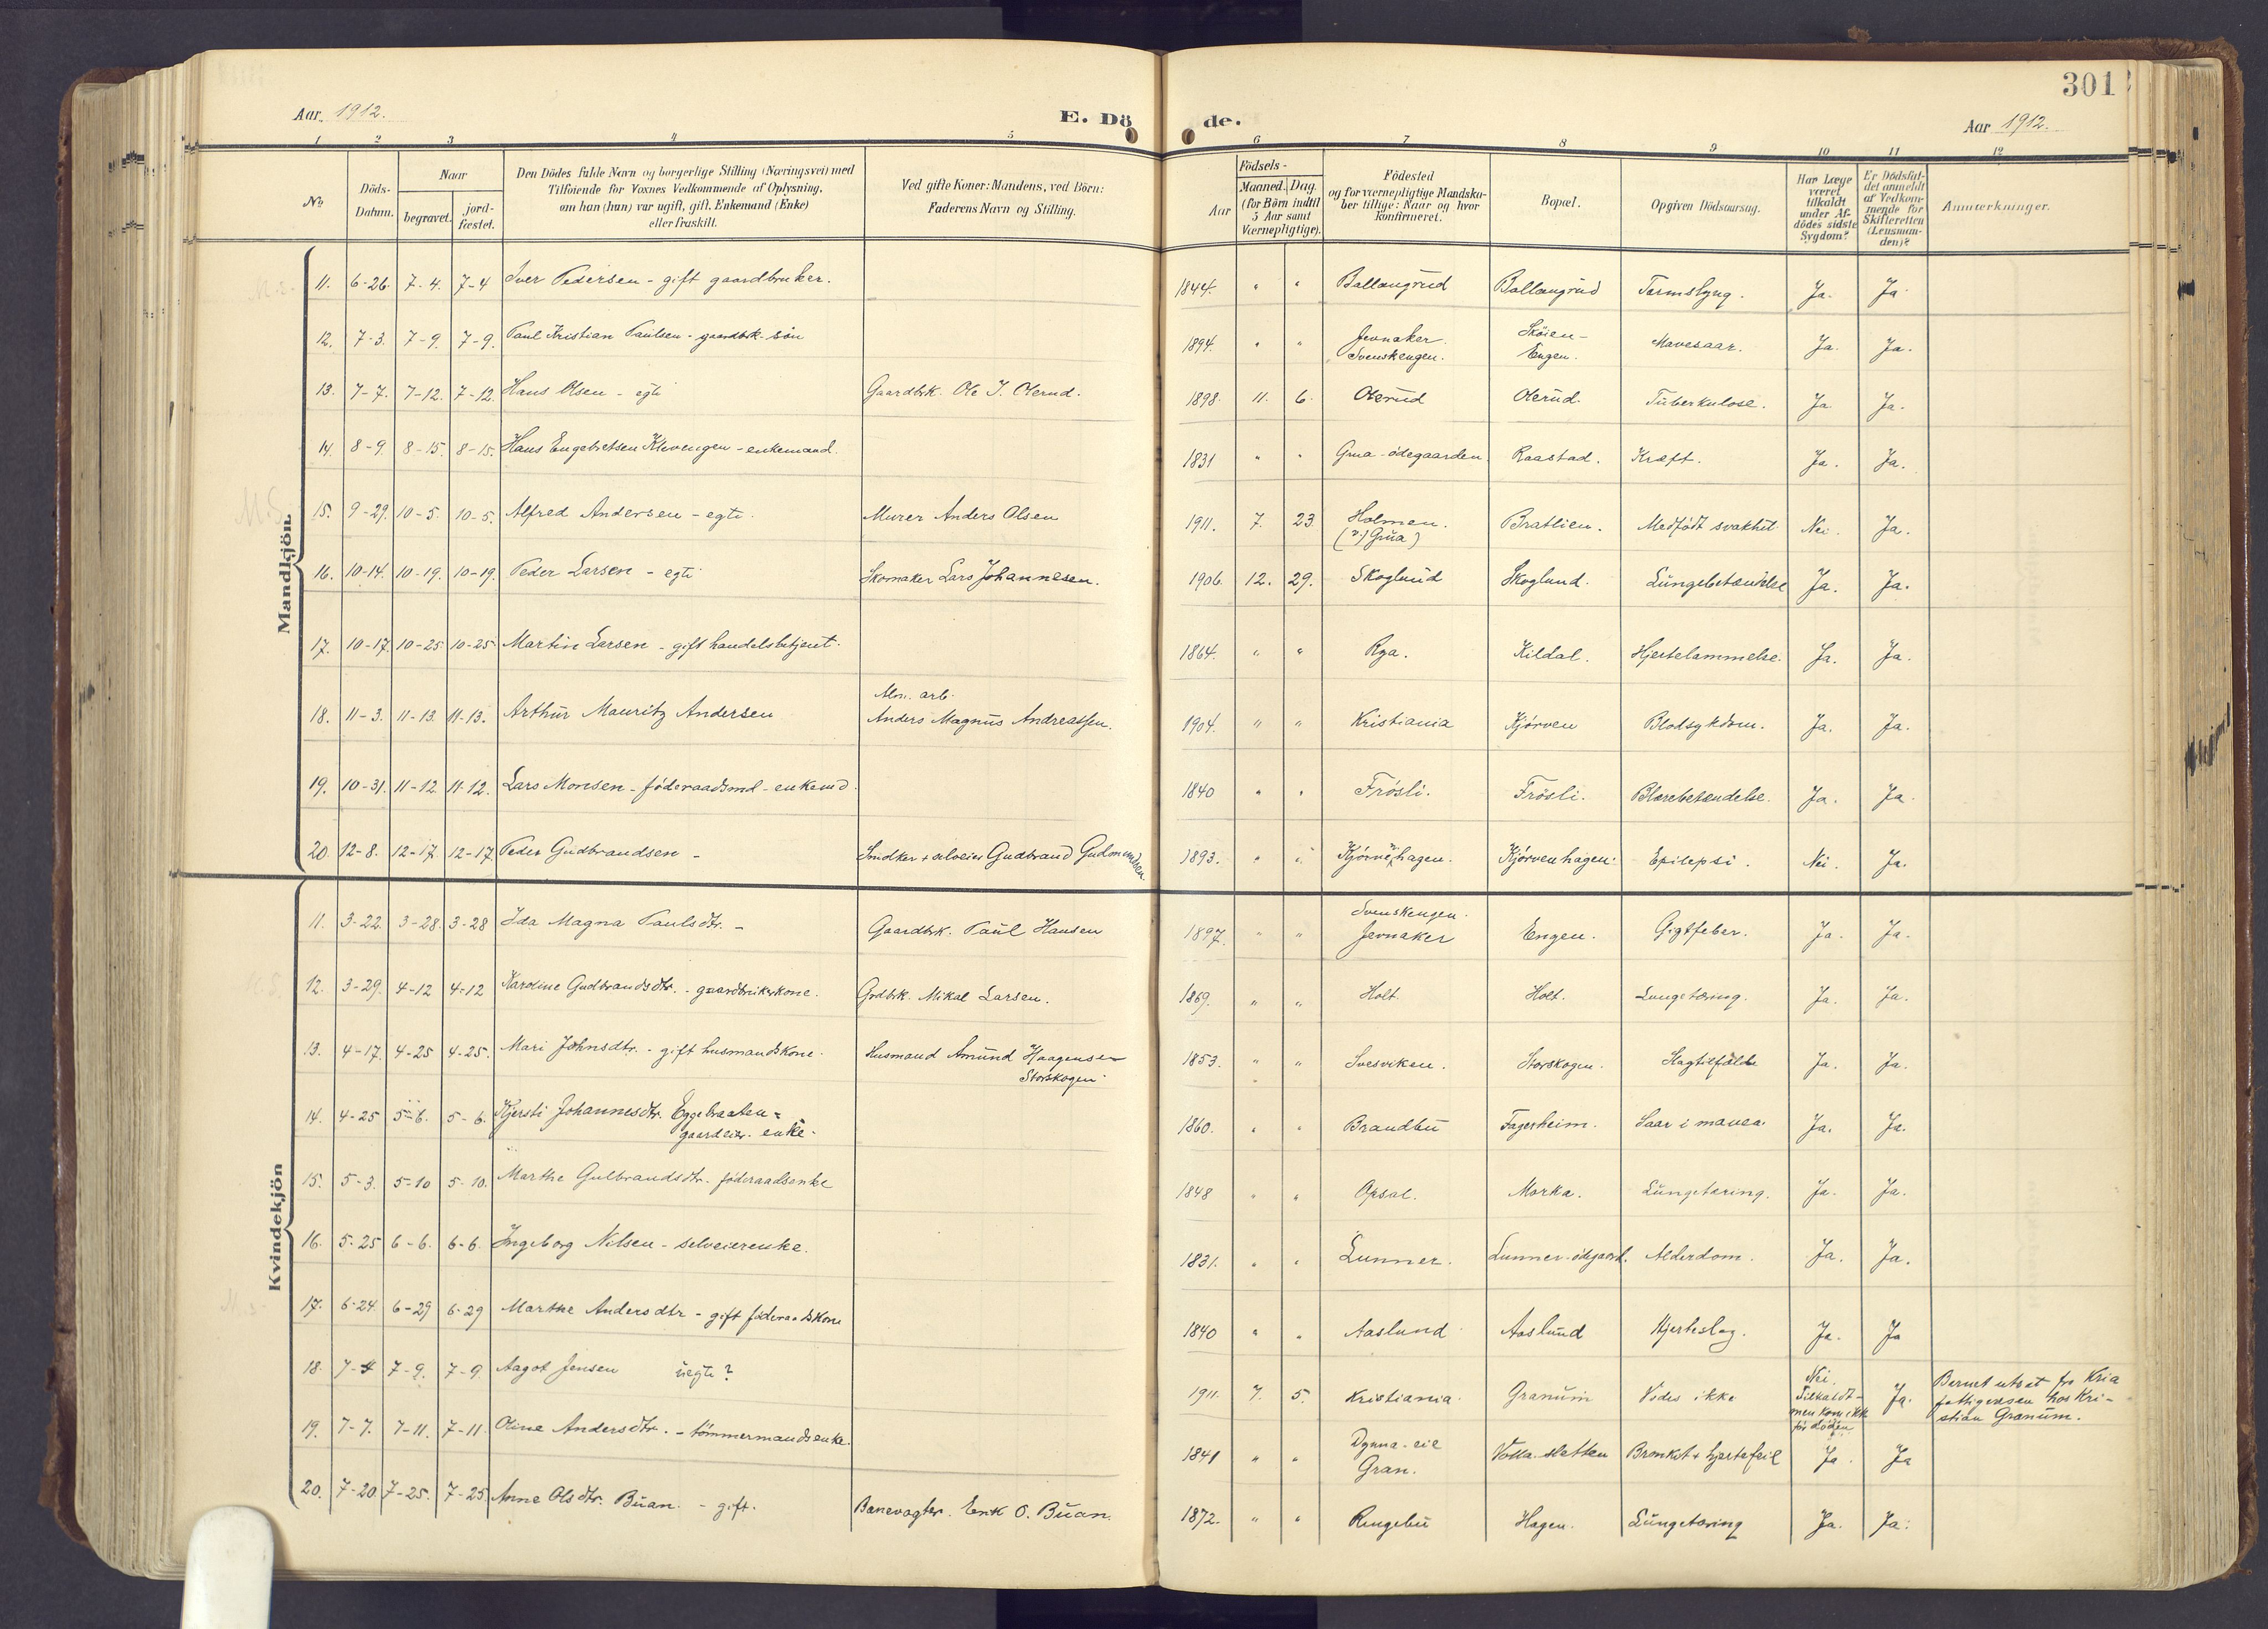 301
Aar 1912.
E. Dö
de.
Aar 1912.
1 2 3 4 5 6 7 8 9 10 11 12
No
Döds-Datum.
Naar
begravet. jord-fæstet.
Den Dödes fulde Navn og borgerlige Stilling (Næringsvei) med
Tilföiende for Voxnes Vedkommende af Oplysning,
om han (hun) var ugift, gift, Enkemand (Enke)
eller fraskilt.
Ved gifte Koner: Mandens, ved Börn:
Faderens Navn og Stilling.
Födsels-
Aar
Maaned. Dag.
(for Börn indtil
5 Aar samt
Værnepligtige).
Födested
og for værnepligtige Mandska-
ber tillige: Naar og hvor
konfirmeret.
Bopæl.
Opgiven Dödsaarsag.
Har Læge
været
tilkaldt
under Af-
dödes sidste
Sygdom?
Er Dödsfal-
det anmeldt
af Vedkom-
mende for
Skifteretten
(Lensman-
den)?
Anmærkninger.
Mandkjön.
11. 6-26. 7-4. 7-4 Iver Pedersen - gift gaardbruker. 1844. " " Ballangrud Ballangrud Tarmslyng. Ja. Ja
12. 7-3. 7-9. 7-9. Paul Kristian Paulsen - gaardbrk. sön 1894. " " Jevnaker. Svenskengen. Sköien-Engen. Mavesaar. Ja. Ja.
13. 7-7. 7-12. 7-12. Hans Olsen - egte Gaardbrk. Ole J. Olerud. 1898. 11. 6. Olerud Olerud. Tuberkulose. Ja Ja.
14. 8-9. 8-15. 8-15. Hans Engebretsen Klevengen - enkemand. 1831 " " Grua-ödegaarden Raastad. Kræft. Ja. Ja.
15. 9-29. 10-5. 10-5. Alfred Andersen - egte. Murer Anders Olsen 1911. 7. 23. Holmen. (v/ Grua) Bratlien. Medfödt svakhet Nei. Ja.
16. 10-14. 10-19. 10-19. Peder Larsen - egte Skomaker Lars Johannesen. 1906. 12. 29. Skoglund Skoglund. Lungebetændelse Ja. Ja.
17. 10-17. 10-25 10-25. Martin Larsen - gift handelsbetjent. 1864. " " Rya. Kildal. Hjertelammelse. Ja. Ja.
18. 11-3. 11-13. 11-13. Arthur Mauritz Andersen Alm. arb. Anders Magnus Andreassen. 1904. " " Kristiania Kjörven Blodsykdom. Ja. Ja.
19. 10-31. 11-12. 11-12. Lars Monsen - föderaadsmd - enkemd. 1840 " " Frösli. Frösli. Blærebetændelse. Ja. Ja.
20. 12-8. 12-17. 12-17. Peder Gudbrandsen - Smdker + selveier Gudbrand Gudmundsen 1893. " " Kjörvenhagen. Kjörvenhagen. Epilepsi. Nei. Ja.
Kvindekjön
11. 3-22. 3-28. 3-28 Ida Magna Paulsdtr. - Gaardbrk. Paul Hansen 1897. " " Svenskengen. Jevnaker Engen. Gigtfeber. Ja. Ja.
12. 3-29. 4-12 4-12 Karoline Gudbrandsdtr. - gaardbrukerkone. Grdbrk. Mikal Larsen. 1869. " " Holt. Holt. Lungetæring. Ja. Ja.
13. 4-17. 4-25 4-25. Mari Johnsdtr. - gift husmandskone. Husmand Amund Haagensen Storskogen 1853. " " Svesviken. Storskogen. Slagtilfælde Ja. Ja.
14. 4-25 5-6. 5-6. Kjersti Johannesdtr. Eggebraaten - gaardeier. enke. 1860. " " Brandbu Fagerheim. Saar i maven. Ja. Ja.
15. 5-3. 5-10 5-10. Marthe Gulbrandsdtr. föderaadsenke 1848 " " Opsal. Morka. Lungetæring. Ja. Ja.
16. 5-25 6-6. 6-6. Ingeborg Nilsen - selveierenke. 1831. " " Lunner. Lunner-ödegaard. Alderdom. Ja. Ja.
17. 6-24. 6-29 6-29 Marthe Andersdtr - gift föderaadskone 1840 " " Aaslund Aaslund Hjerteslag. Ja. Ja
18. 7-4 7-9. 7-9. Aagot Jensen uegte? 1911. 7. 5. Kristiania. Granum Vides ikke Nei. Tilkaldt - men kom ikke för döden Ja. Barnet utsat fra Kria fattigvæsen hos Kristian Granum.
19. 7-7. 7-11. 7-11 Oline Andersdtr. - tömmermandsenke. 1841 " " Dynna-eie Gran. Volla-sletten Bronkit + hjertefeil Ja. Ja
20. 7-20. 7-25. 7-25 Anne Olsdtr. Buan. - gift. Banevogter. Erik O. Buan. 1872. " " Ringebu Hagen. Lungetæring Ja. Ja.